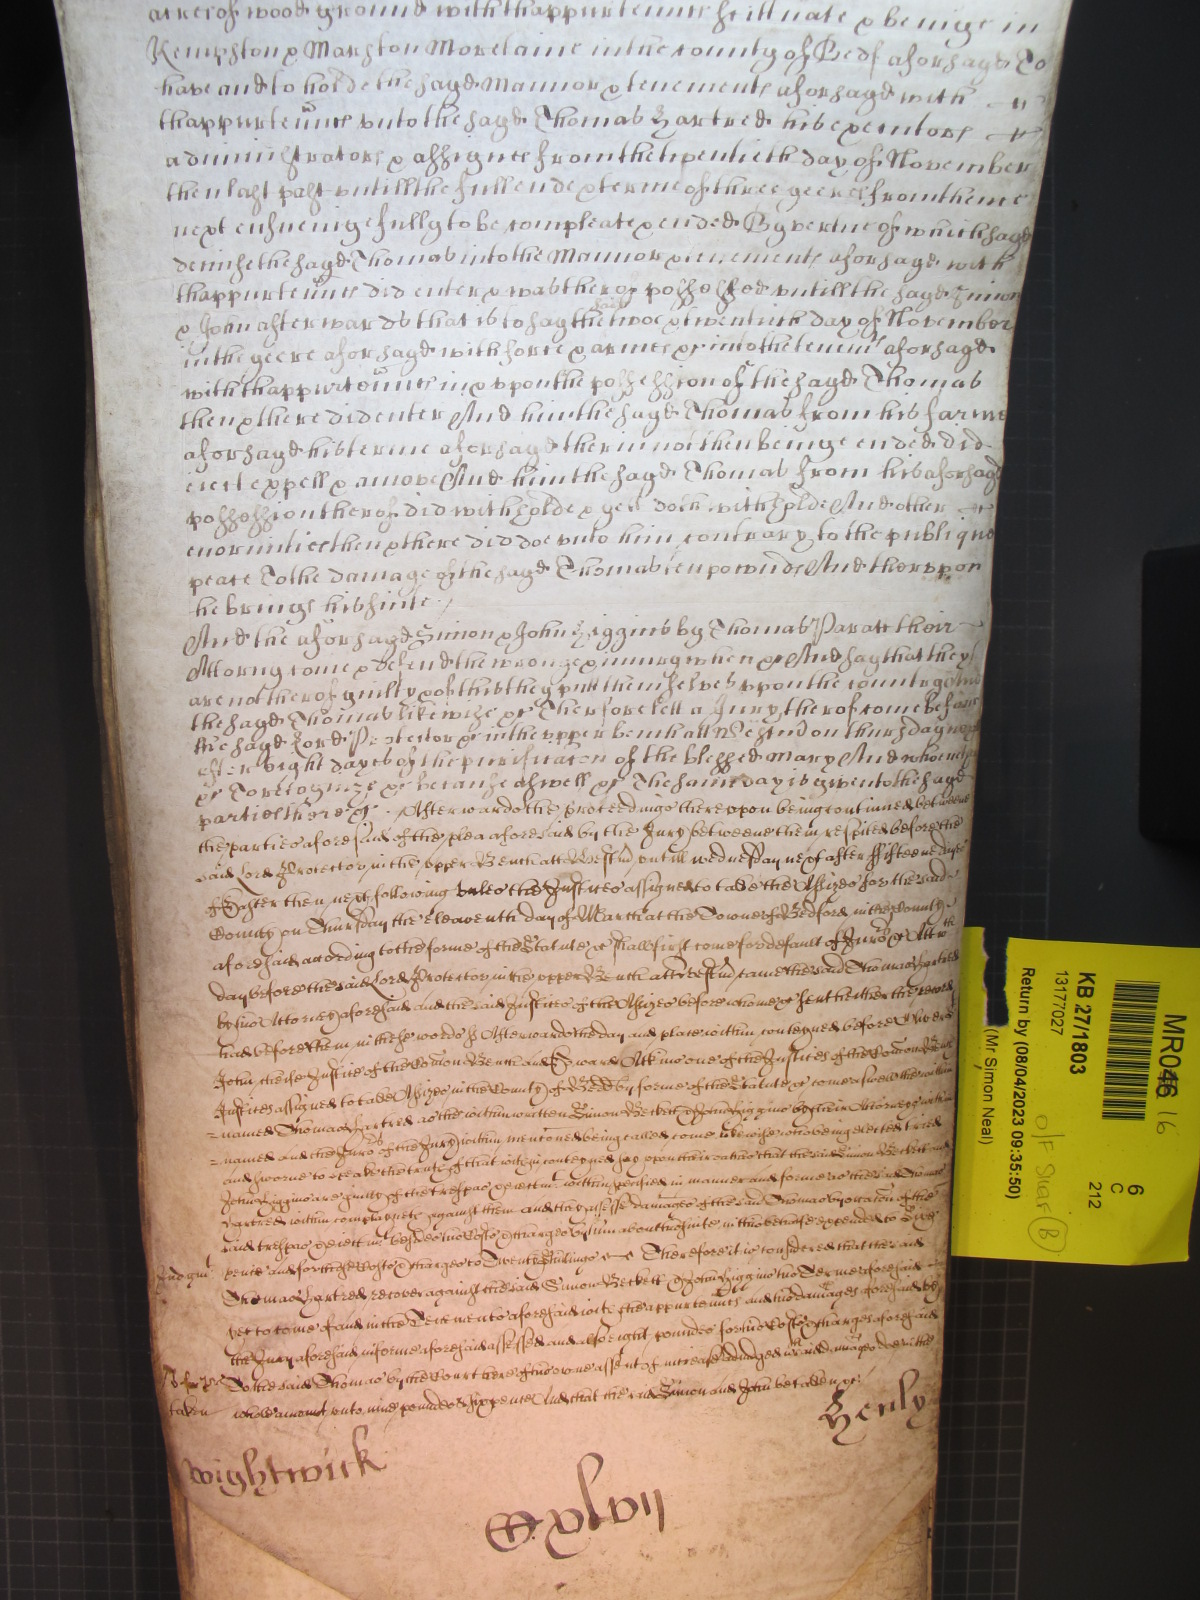 acres of wood ground with thappurtenncs scittuate & beinge in
Kempston & Marston Moretaine in the county of Bedf aforsayd To
have and to holde the sayd Mannor & tenements aforsayd with
thappurtennces unto the sayd Thomas Hartred his executors
administrators & assignes from the twentieth day of November
then last past untill the full ende & terme of three yeeres from thence
next ensueinge fully to be compleate & ended By vertue of which sayd
demise the sayd Thomas into the Mannor & tenements aforsayd with
thappurtennces did enter & was therof possessed untill the sayd Simon
& John afterwards that is to say the said twoe & twentieth day of November
in the yeere aforsayd with force & armes &c into the tenemts aforsayd
with thappurtennces in & upon the possession of the sayd Thomas
then & there did enter And him the sayd Thomas from his farme
aforsayd his terme aforsayd therin not then beinge ended did
eiect expell & amove And him the sayd Thomas from his aforsayd
possession therof did withholde & yet doth withholde And other
enormities then & there did doe unto him contrary to the publique
peace To the damage of the sayd Thomas ten pownds And therupon
he brings his suite
And the aforsayd Simon & John Higgins by Thomas Paratt their
Attorny come & defend the wronge & iniury when &c And say that they
are not therof guilty & of this they putt themselves upon the country And
the sayd Thomas likewise &c Therfore lett a Jury therof come before
the sayd Lord Protector &c in the upper bench att Westmr on thursday next
after eight dayes of the purificaton of the blessed Mary And who neither
&c To recognize &c because aswell &c The same day is given to the sayd
parties there &c . Afterwards the proceedings thereupon being continued betweene
the parties aforesaid of the plea aforesaid by the Jury betweene them respited before the
said Lord Protector in the upper Bench att Westmr untill wednesday next after fifteene dayes
of Easter then next following unles the Justices assigned to take the Assizes for the said
County on Thursday the eleaventh day of March at the Towne of Bedford in the County
aforesaid according to the forme of the Statute &c shall first come for default of Jurors &c Att wch
day before the said Lord Protector in the upper Bench att Westmr came the said Thomas Hartred
by his Attorney aforesaid and the said Justices of the Assizes before whome &c sent hether the record
had before them in these words ss Afterwards the day and place within conteyned before Oliver St
John cheife Justice of the Common Bench and Edward Atkins one of the Justices of the Common Bench
Justices assigned to take Assizes in the County of Bedd by forme of the Statute &c come aswell the within
named Thomas Hartred as the within written Simon Beckett & John Higgins by their Attorneys within
named and the Jurors of the Jury within menconed being called come likewise who being elected tried
and sworne to speake the truth of that within conteyned say upon their oathes that the said Simon Beckett and
John Higgins are guilty of the trespas & eiectmt within specified in manner and forme as the said Thomas
Hartred within complayneth against them and they assesse damages of the said Thomas by occasion of the
said trespas & eiectmt besides his Costs & charges by him about his suite in this behalfe expended to Sixe
pence and for those Costs & charges to Twenty shillings Therefore it is considered that the said
Judgmt
Thomas Hartred recover against the said Simon Beckett & John Higgins his Terme aforesaid
yet to come of and in the Tenements aforesaid with the appurtennces and his damages aforesaid by
the Jury aforesaid in forme aforesaid assessed and also eight poundes for his Costs & charges aforesaid
To the said Thomas by the Court here of his owne assent of increase adiudged wch said damages doe in the
taken
whole amount unto nine poundes & sixpence And that the said Simon and John be taken &c
Henly
Wightwick
MR046 16
KB 27/1803
13177027
Return by (08/04/2023 09:35:50)
(Mr Simon Neal)
6
C
212
O/F Shelf B